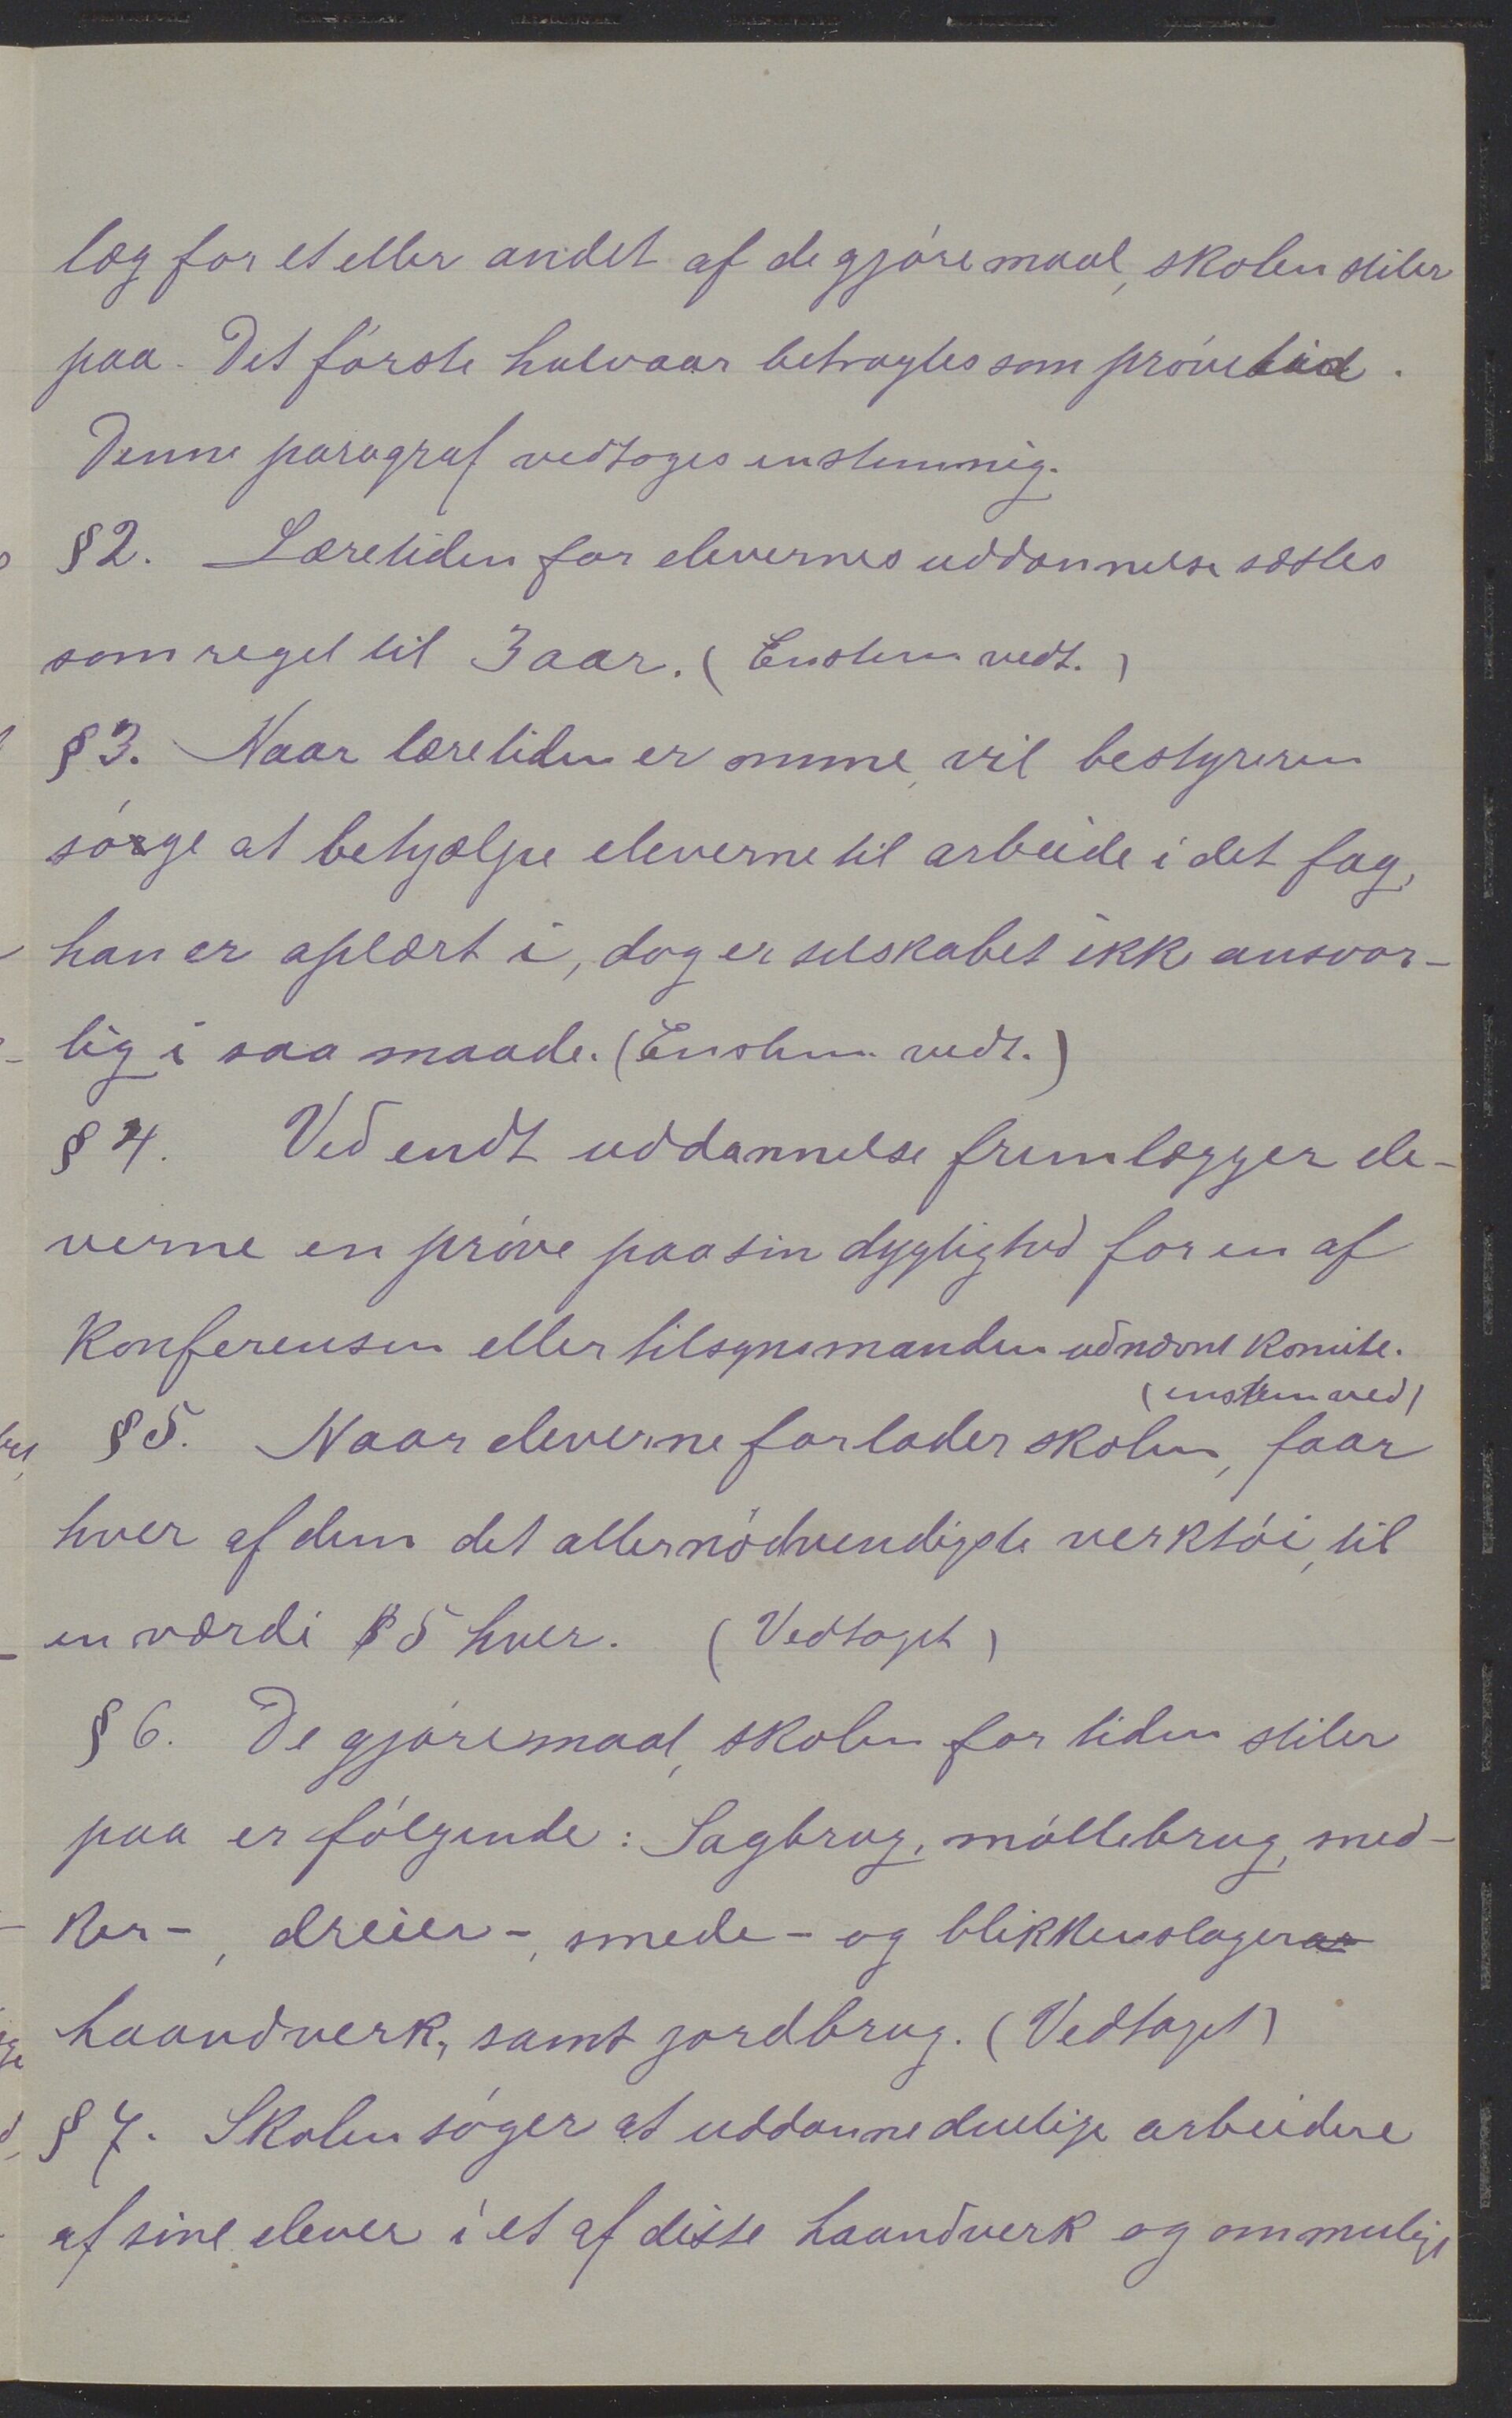 læg for et eller andet af de gjøremaal, skolen stiler
paa. Det første halvaar betragtes som prøvetid.
Denne paragraf vedtoges enstemmig.
§2. Læretiden for elevernes uddannelse sættes
som regel til 3 aar. (Enstem vedt.)
§3. Naar læretiden er omme, vil bestyreren
sørge at behjælpe eleverne til arbeide i det fag,
han er oplært i, dog er selskabet ikke ansvar-
lig i saa maade. (Enstem. vedt.)
§4. Ved endt uddannelse fremlægger ele-
verne en prøve paa sin dygtighed for en af
Konferensen eller tilsynsmanden udnævnt Komite.
(enstem ved)
§5. Naar eleverne forlader skolen, faar
hver af dem det allernødvendigste verktøi, til
en værdi $5 hver. (Vedtaget)
§6. De gjøremaal, skolen for tiden stiler
paa er følgende: Sagbrug, møllebrug, sned-
ker-, dreier-, smede- og blikkenslager
haandverk, samt jordbrug. (Vedtaget)
§7. Skolen søger at uddanne duelige arbeidere
af sine elever i et af disse haandverk og om muligt